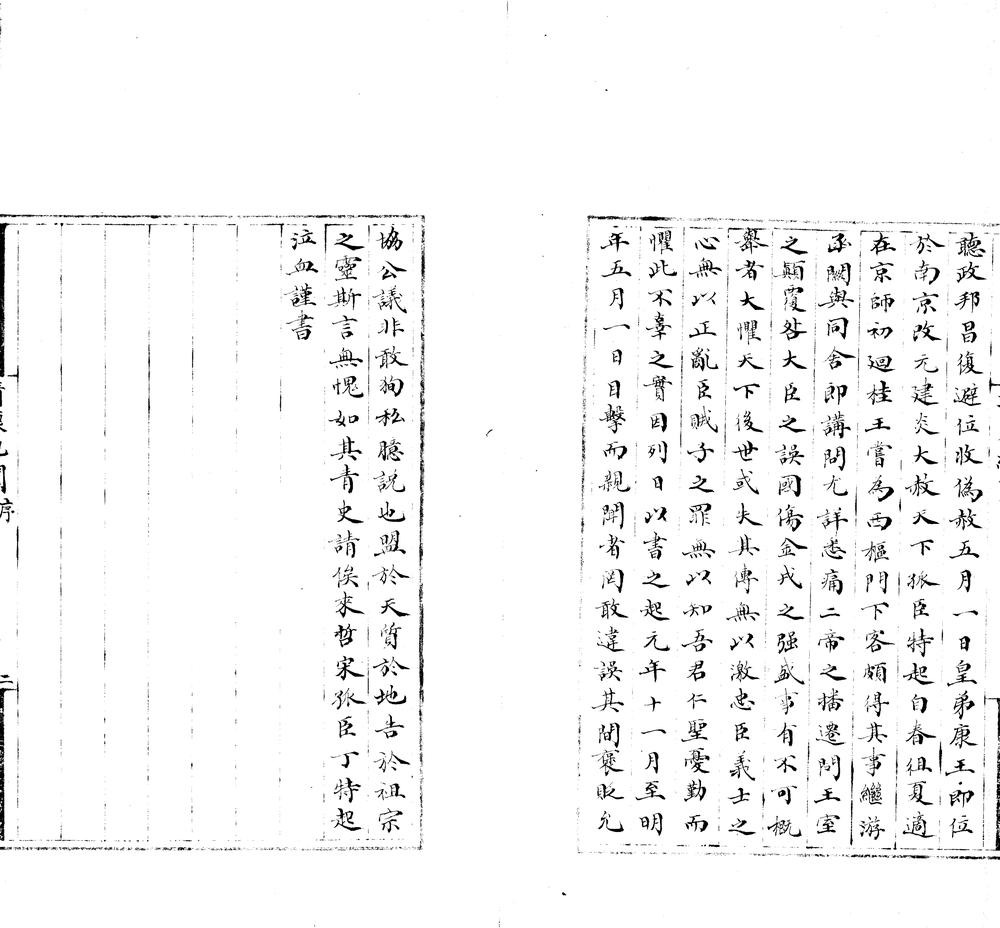 聽政邦昌復避位收偽赦五月一日皇弟康王即位
於南京改元建炎大赦天下孤臣特起自春徂夏適
在京師初迴桂王嘗為西樞門下客頗得其事繼游
函闕與同舍即講問尤詳恚痛二帝之播遷問王室
之顛覆咎大臣之誤國傷金戎之强盛事有不可概
舉者大懼天下後世或失其傳無以激忠臣義士之
心無以正亂臣賊子之罪無以知吾君仁聖憂勤而
懼此不辜之實因列日以書之起元年十一月至明
年五月一日目擊而親聞者罔敢違誤其間褒貶允
協公議非敢狥私臆説也盟於天質於地告於祖宗
之靈斯言無愧如其青史請俟來哲宋孤臣丁特起
泣血謹書
序
二